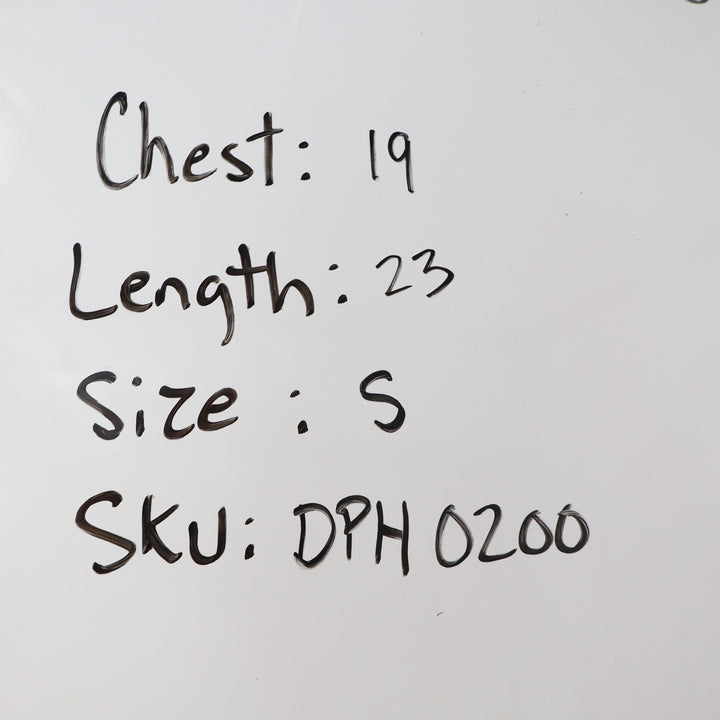 Chest: 19
Length: 23
Size : S
SKU: DPH 0200